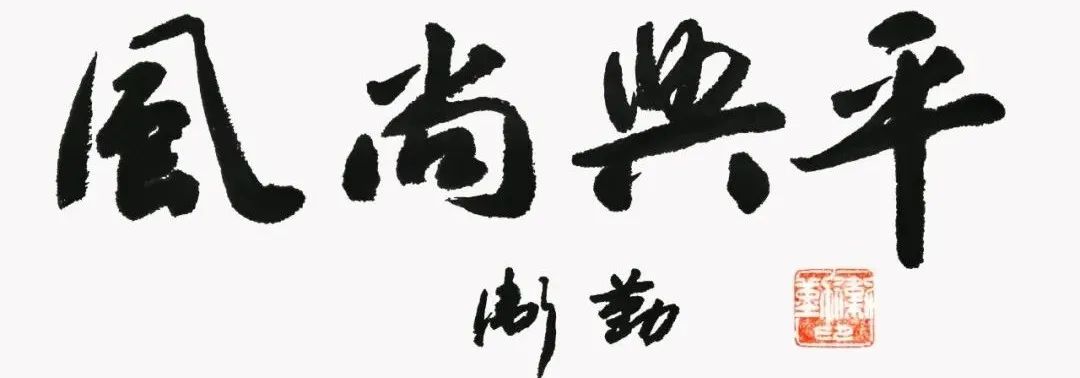 風尚興平
衛勤